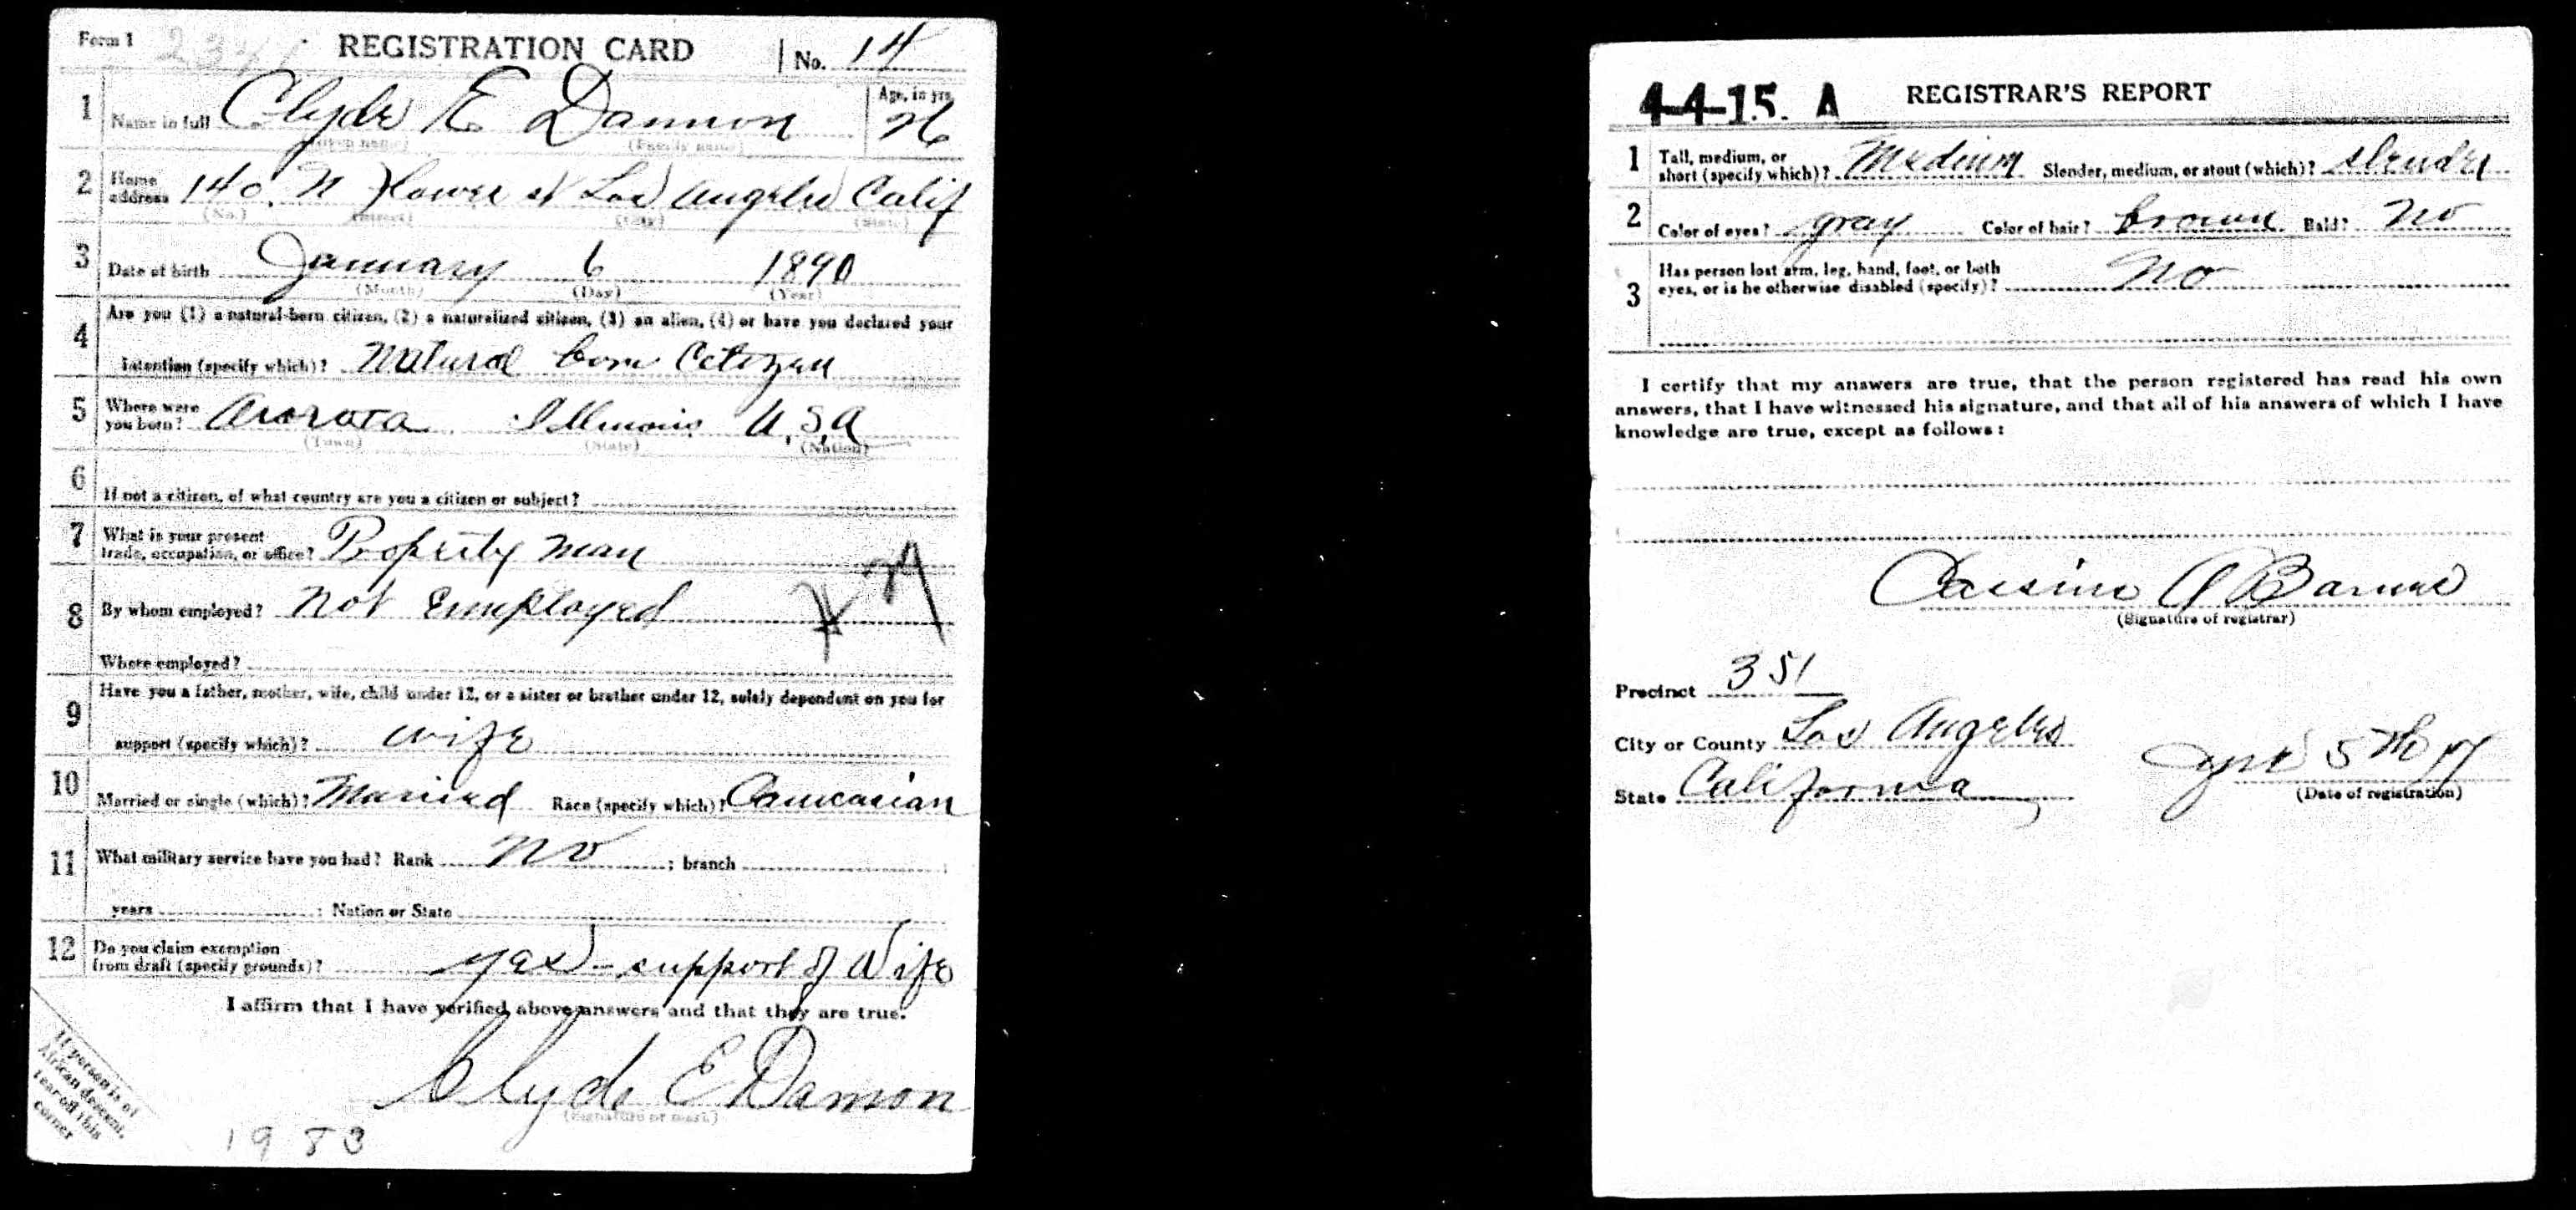 Form 1 REGISTRATION CARD No. 14
1 Name in full Clyde E Damon Age, in yrs.
(Given name) (Family name) 26
2 Home address 140 N Flower st Los Angeles Calif
(No.) (Street) (City) (State)
3 Date of birth January 6 1890
(Month) (Day) (Year)
4 Are you (1) a natural-born citizen, (2) a naturalized citizen, (3) an alien, (4) or have you declared your
intention (specify which)? Natural born Citizen
5 Where were you born? Aurora Illinois U.S.A
(Town) (State) (Nation)
6 If not a citizen, of what country are you a citizen or subject?
7 What is your present trade, occupation, or office? Property man
8 By whom employed? Not Employed
Where employed?
9 Have you a father, mother, wife, child under 12, or a sister or brother under 12, solely dependent on you for
support (specify which)? wife
10 Married or single (which)? Married Race (specify which)? Caucasian
11 What military service have you had? Rank no ; branch
years ; Nation or State
12 Do you claim exemption from draft (specify grounds)? yes - support of Wife
I affirm that I have verified above answers and that they are true.
Clyde E Damon
(Signature or mark)
If person is of
African descent,
tear off this
corner
1983
4-4-15. A REGISTRAR'S REPORT
1 Tall, medium, or short (specify which)? Medium Slender, medium, or stout (which)? slender
2 Color of eyes? gray Color of hair? brown Bald? No
3 Has person lost arm, leg, hand, foot, or both
eyes, or is he otherwise disabled (specify)? No
I certify that my answers are true, that the person registered has read his own
answers, that I have witnessed his signature, and that all of his answers of which I have
knowledge are true, except as follows:
(Signature of registrar)
Precinct 351
City or County Los Angeles
State California June 5th 17
(Date of registration)